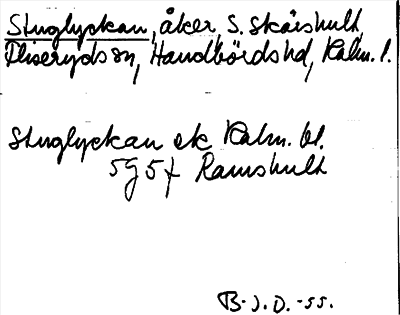 Stuglyckan, åker, S. Skärshult,
Fliseryds sn, Handbörds hd, Kalm. l.
Stuglyckan ek Kalm. bl.
5g5f Ramshult
B. J. D. -55.